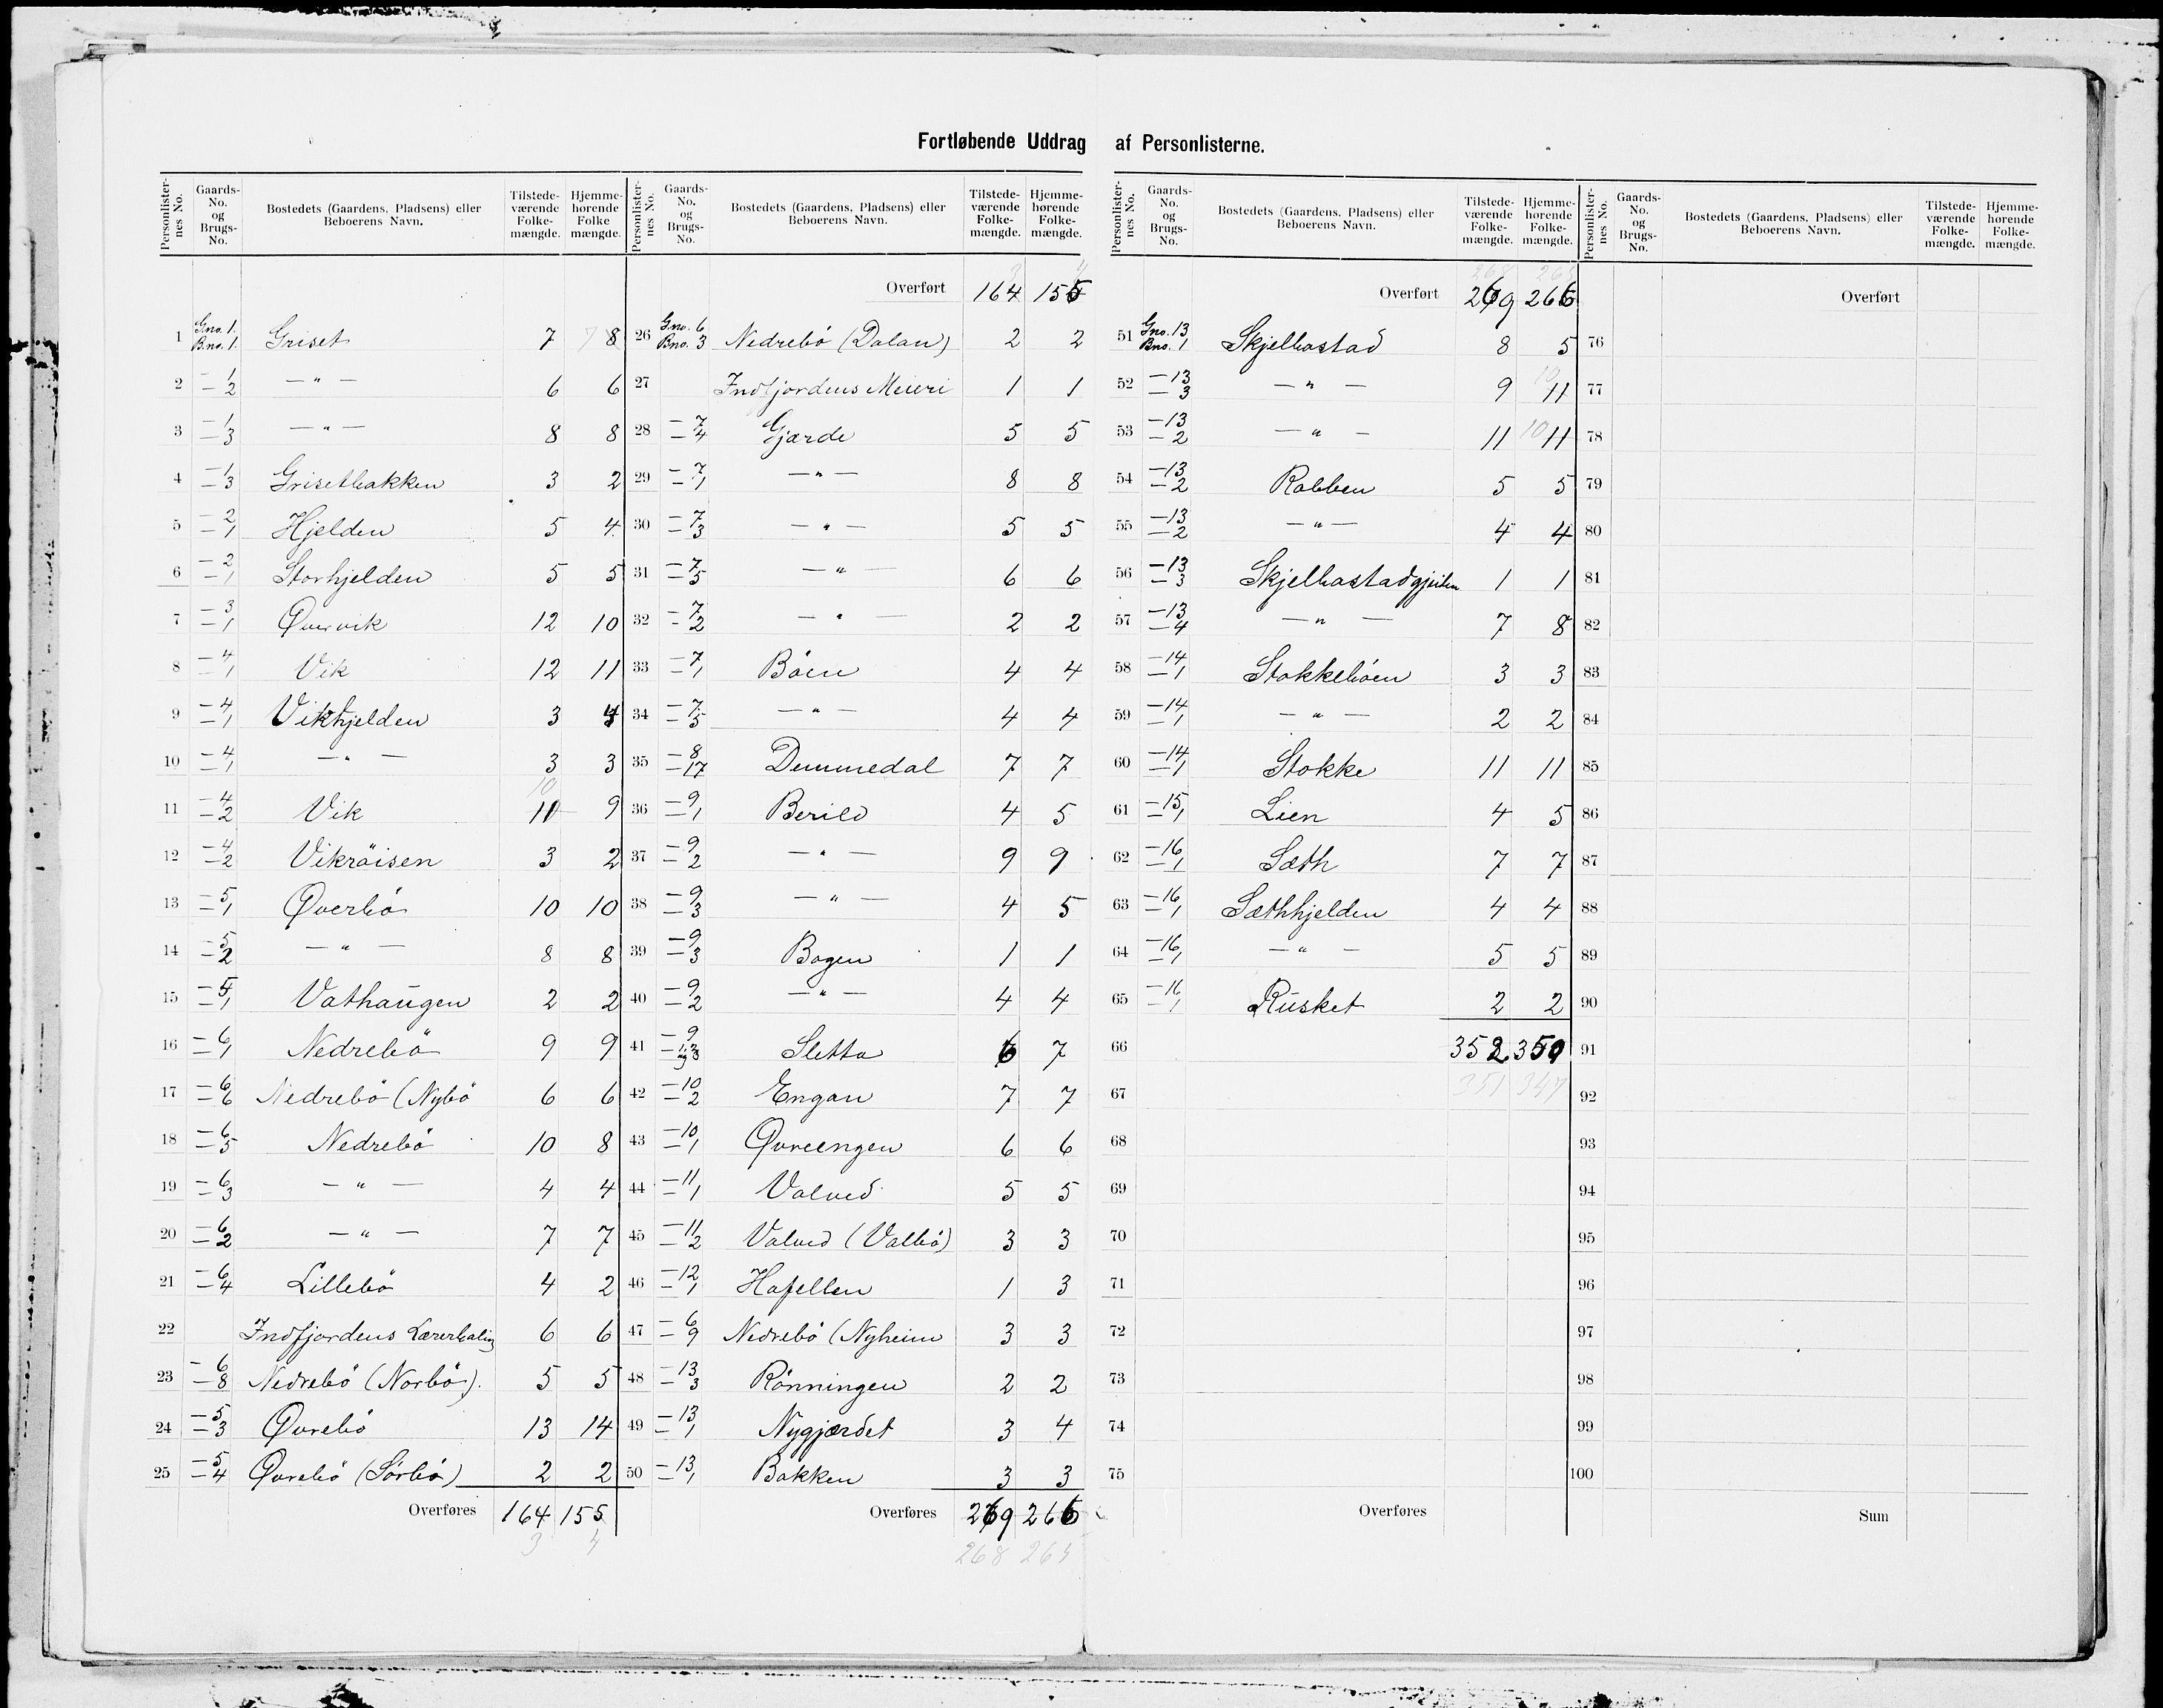 Fortløbende Uddrag af Personlisterne.
Personlisternes No. Gaards-No. og Brugs-No. Bostedets (Gaardens, Pladsens) eller Beboerens Navn. Tilstedeværende Folkemængde. Hjemmehørende Folkemængde.
1 Gno. 1. Bno. 1. Griset 7 7 8
2 — 1 — 2 — " — 6 6
3 — 1 — 3 — " — 8 8
4 — 1 — 3 Grisetbakken 3 2
5 — 2 — 1 Hjelden 5 4
6 — 2 — 1 Storhjelden 5 5
7 — 3 — 1 Øvervik 12 10
8 — 4 — 1 Vik 12 11
9 — 4 — 1 Vikhjelden 3 4
10 — 4 — 1 — " — 3 3
11 — 4 — 2 Vik 10 11 9
12 — 4 — 2 Vikröisen 3 2
13 — 5 — 1 Øverbö 10 10
14 — 5 — 2 — " — 8 8
15 — 1 Vathaugen 2 2
16 — 6 — 1 Nedrebö 9 9
17 — 6 — 6 Nedrebö (Nybö 6 6
18 — 6 — 5 Nedrebö 10 8
19 — 6 — 3 — " — 4 4
20 — 6 — 2 — " — 7 7
21 — 6 — 4 Lillebö 4 2
22 Indfjordens Lærerbolig 6 6
23 — 6 — 8 Nedrebö (Norbö). 5 5
24 — 5 — 3 Øvrebö 13 14
25 — 5 — 4 Øvrebö (Sörbö) 2 2
Overføres 164 155
3 4
Personlisternes No. Gaards-No. og Brugs-No. Bostedets (Gaardens, Pladsens) eller Beboerens Navn. Tilstedeværende Folkemængde. Hjemmehørende Folkemængde.
3 4
Overført 164 155
26 Gno. 6 Bno. 3 Nedrebö (Dalan) 2 2
27 Indfjordens Meieri 1 1
28 — 7 — 4 Gjærde 5 5
29 — 7 — 1 — " — 8 8
30 — 7 — 3 — " — 5 5
31 — 7 — 5 — " — 6 6
32 — 7 — 2 — " — 2 2
33 — 7 — 1 Böen 4 4
34 — 7 — 5 — " — 4 4
35 — 8 — 17 Demmedal 7 7
36 — 9 — 1 Berild 4 5
37 — 9 — 2 — " — 9 9
38 — 9 — 3 — " — 4 5
39 — 9 — 3 Bogen 1 1
40 — 9 — 2 — " — 4 4
41 — 9 Sletta 6 7
42 — 10 — 2 Engan 7 7
43 — 10 — 1 Øvreengen 6 6
44 — 11 — 1 Valved 5 5
45 — 11 — 2 Valved (Valbö) 3 3
46 — 12 — 1 Hafellen 1 3
47 — 6 — 9 Nedrebö (Nyheim 3 3
48 — 13 — 3 Rönningen 2 2
49 — 13 — 1 Nygjærdet 3 4
50 — 13 — 1 Bakken 3 3
Overføres 269 266
268 264
Personlisternes No. Gaards-No. og Brugs-No. Bostedets (Gaardens, Pladsens) eller Beboerens Navn. Tilstedeværende Folkemængde. Hjemmehørende Folkemængde.
Overført 269 266
51 Gno. 13 Bno. 1 Skjelbostad 8 5
52 — 13 — 3 — " — 9 10 11
53 — 13 — 2 — " — 11 10 11
54 — 13 — 2 Rabben 5 5
55 — 13 — 2 — " — 4 4
56 — 13 — 3 Skjelbostadgjeilen 1 1
57 — 13 — 4 — " — 7 8
58 — 14 — 1 Stokkeböen 3 3
59 — 14 — 1 — " — 2 2
60 — 14 — 1 Stokke 11 11
61 — 15 — 1 Lien 4 5
62 — 16 — 1 Sæth 7 7
63 — 16 — 1 Sæthhjelden 4 4
64 — 16 — 1 — " — 5 5
65 — 16 — 1 Rusket 2 2
66 352 350
67 351 347
68
69
70
71
72
73
74
75
Overføres
Personlisternes No. Gaards-No. og Brugs-No. Bostedets (Gaardens, Pladsens) eller Beboerens Navn. Tilstedeværende Folkemængde. Hjemmehørende Folkemængde.
Overført
76
77
78
79
80
81
82
83
84
85
86
87
88
89
90
91
92
93
94
95
96
97
98
99
100
Sum